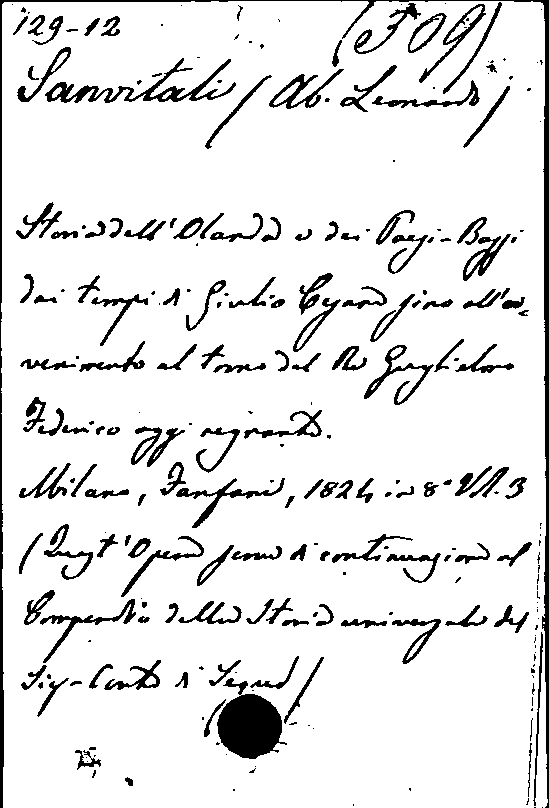 129-12 (F 09)
Sanvitali (Ab. Leonardo)
Storia dell'Olanda e dei Paesi-Bassi
dai tempi di Giulio Cesare fino all'av-
venimento al trono del Re Guglielmo
Federico oggi regnante.
Milano, Fanfani, 1824 in 8° Vol. 3
(Quest'Opera serve di continuazione al
Compendio della Storia universale del
Sig. Conte di Segur)